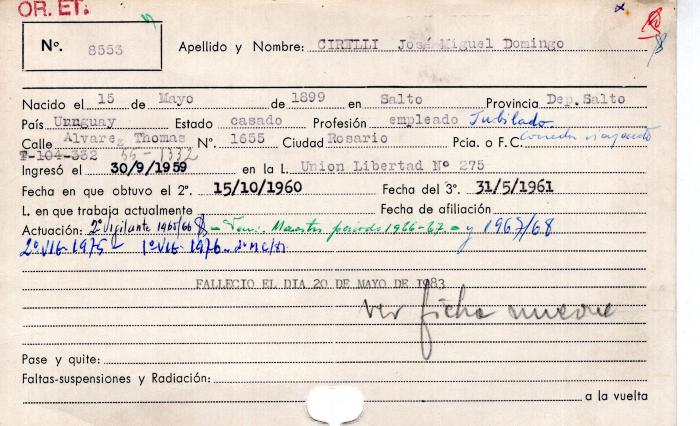 OR. ET.
Nº. 8553
Apellido y Nombre: CIRELLI José Miguel Domingo
Nacido el 15 de Mayo de 1899 en Salto Provincia Dep. Salto
País Uruguay Estado casado Profesión empleado Jubilado
Calle Alvarez Thomas Nº 1655 Ciudad Rosario Pcia. o F.C.
T-104-332
Ingresó el 30/9/1959 en la L. Union Libertad Nº 275
Fecha en que obtuvo el 2º. 15/10/1960 Fecha del 3º. 31/5/1961
L. en que trabaja actualmente Fecha de afiliación
Actuación: 2º Vigilante 1965/66 Ven. Maestro periodo 1966-67 y 1967/68
2º VIG. 1975 1º VIG. 1976
FALLECIO EL DIA 20 DE MAYO DE 1983
ver ficha nueva
Pase y quite:
Faltas-suspensiones y Radiación:
a la vuelta